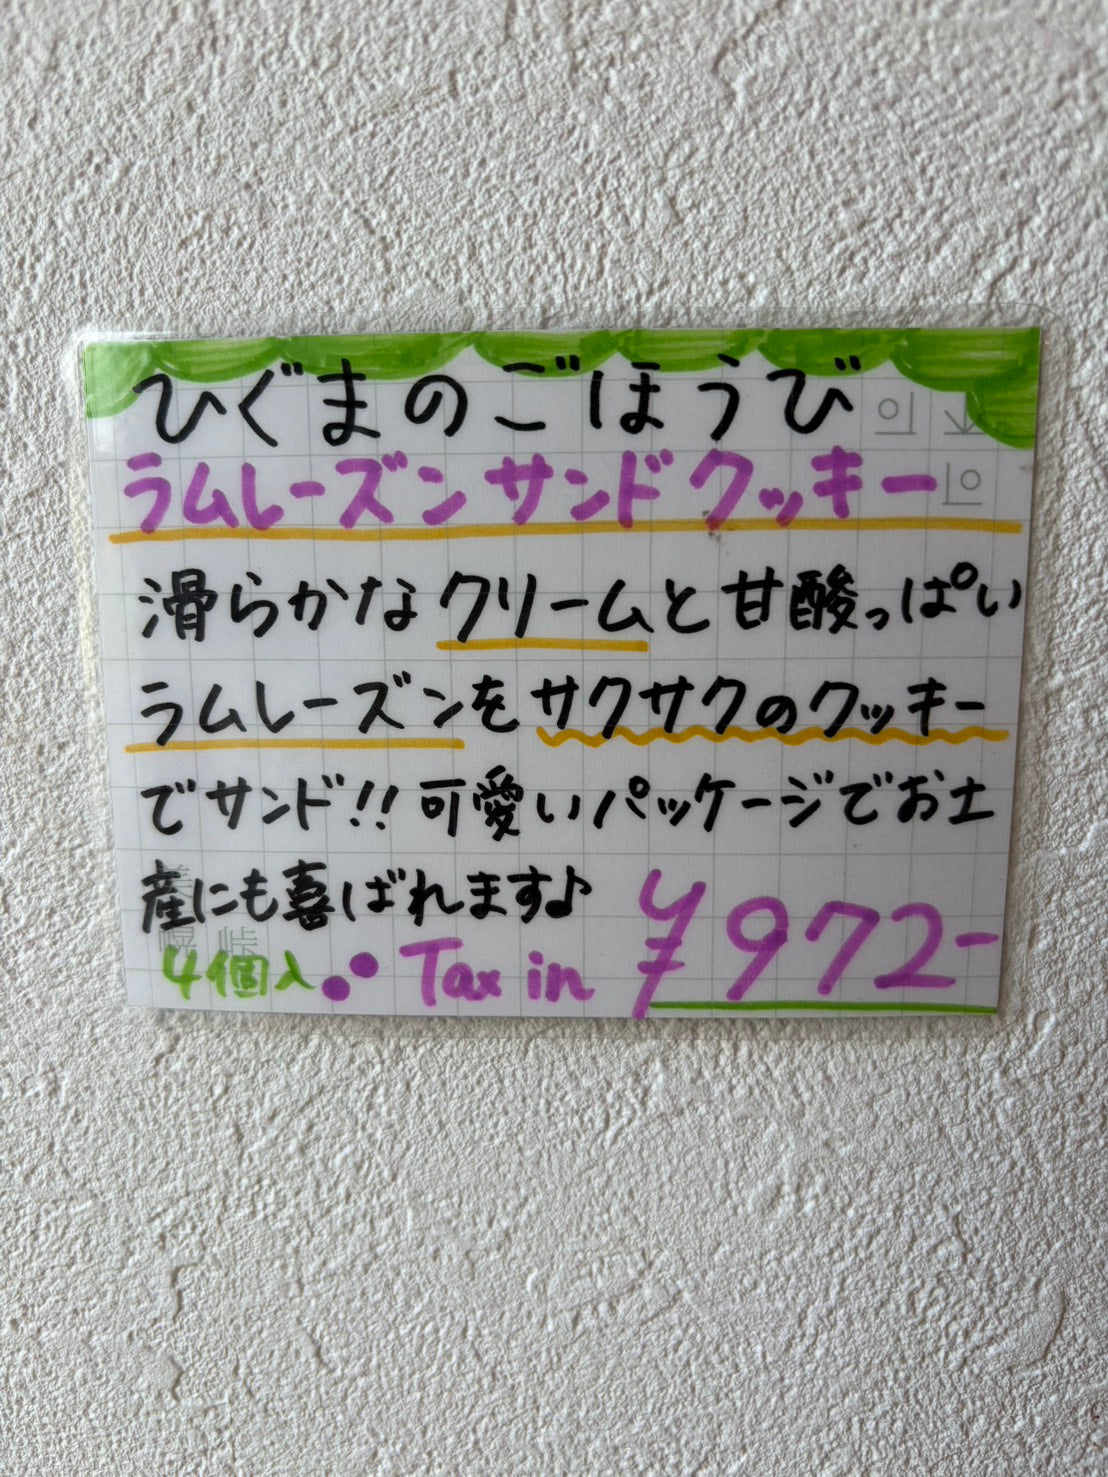 ひぐまのごほうび
ラムレーズンサンドクッキー
滑らかなクリームと甘酸っぱい
ラムレーズンをサクサクのクッキー
でサンド!! 可愛いパッケージでお土
産にも喜ばれます♪
4個入 Tax in ¥972-